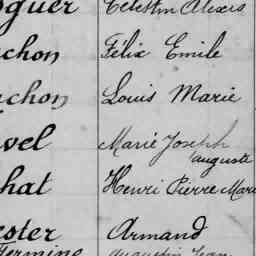 guer Célestin Alexis
chon Félix Emile
chon Louis Marie
vel Marié Joseph
auguste
hat Henri Pierre Marie
ester Armand
Fermine Augustin Jean